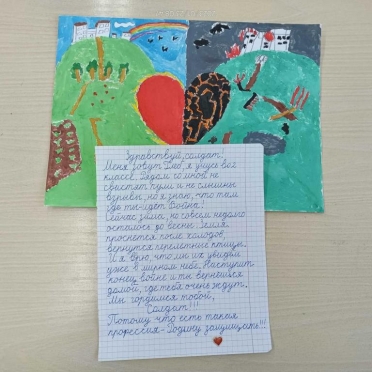 Здравствуй, солдат!
Меня зовут Лев, я учусь во 2
классе. Рядом со мной не
свистят пули и не слышны
взрывы, но я знаю, что там
где ты идёт Война!
Сейчас зима, но совсем недолго
осталось до весны. Земля
проснётся после холодов,
вернутся перелётные птицы.
И я верю, что мы их увидим
уже в мирном небе. Наступит
конец войне и ты вернёшься
домой, где тебя очень ждут.
Мы гордимся тобой,
Солдат!!!
Потому что есть такая
профессия - Родину защищать!!!